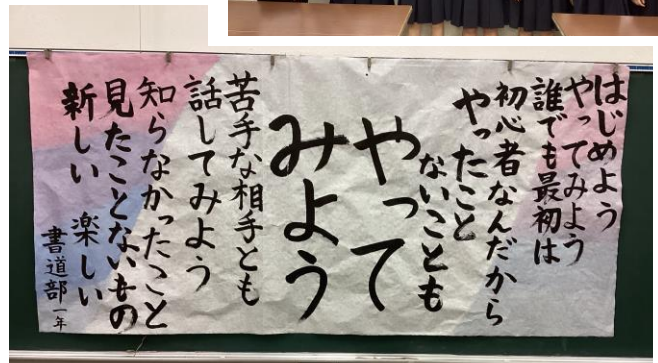 はじめよう
やってみよう
誰でも最初は
初心者なんだから
やったこと
ないことも
やって
みよう
苦手な相手とも
話してみよう
知らなかったこと
見たことないもの
新しい 楽しい
書道部一年